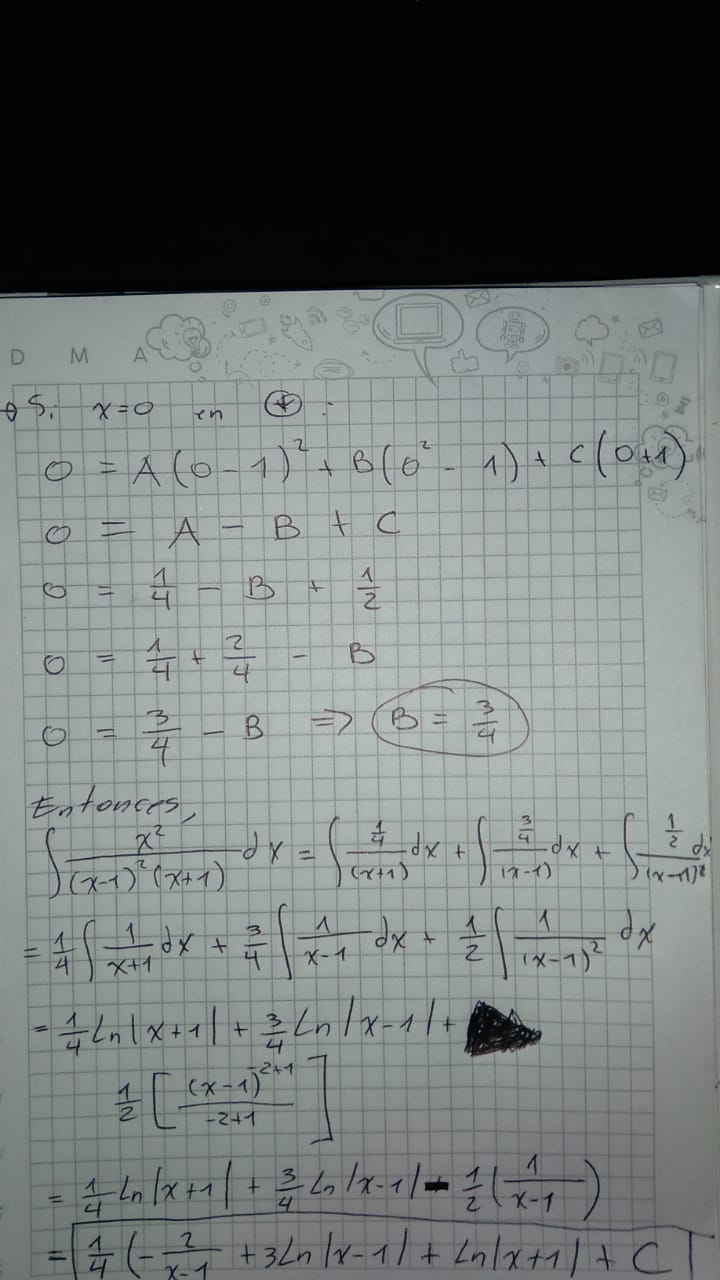 D M A
→ Si x=0 en (*) :
0 = A(0-1)² + B(0² - 1) + C(0+1)
0 = A - B + C
0 = 1/4 - B + 1/2
0 = 1/4 + 2/4 - B
0 = 3/4 - B => B = 3/4
Entonces,
∫ x²/((x-1)²(x+1)) dx = ∫ (1/4)/(x+1) dx + ∫ (3/4)/(x-1) dx + ∫ (1/2)/(x-1)² dx
= 1/4 ∫ 1/(x+1) dx + 3/4 ∫ 1/(x-1) dx + 1/2 ∫ 1/(x-1)² dx
= 1/4 Ln|x+1| + 3/4 Ln|x-1| +
1/2 [ (x-1)^(-2+1)/(-2+1) ]
= 1/4 Ln|x+1| + 3/4 Ln|x-1| - 1/2 (1/(x-1))
= 1/4 (- 2/(x-1) + 3Ln|x-1| + Ln|x+1| + C